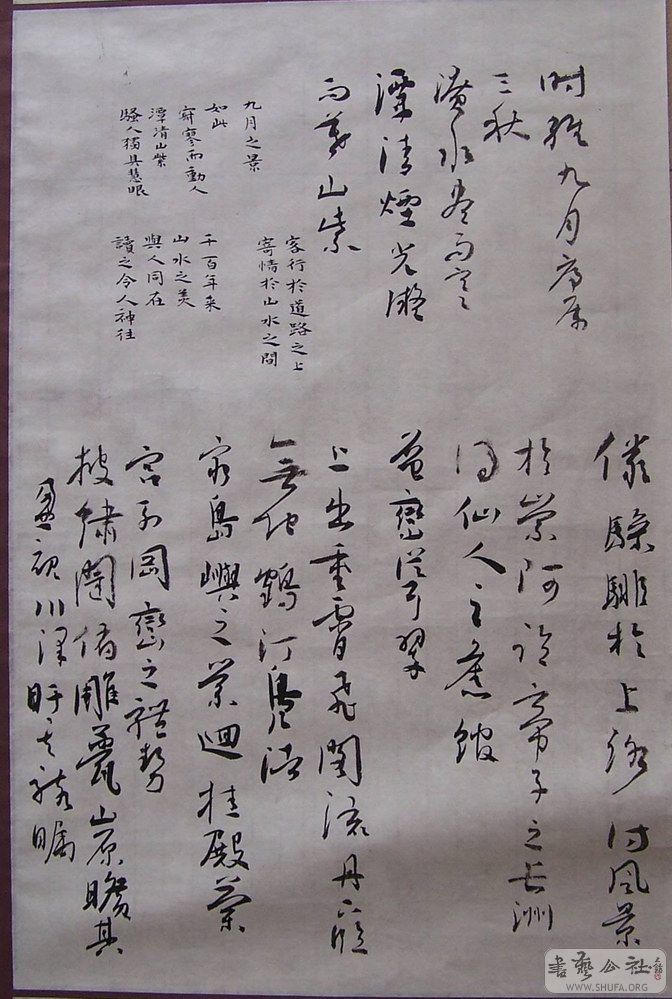 時維九月序屬
三秋
潦水盡而寒
潭清煙光凝
而暮山紫
九月之景
如此
寂寥而動人
潭清山紫
騷人獨具慧眼
客行於道路之上
寄情於山水之間
千百年来
山水之美
與人同在
讀之令人神往
儼驂騑於上路訪風景
於崇阿臨帝子之長洲
得仙人之舊館
層巒聳翠
上出重霄飛閣流丹下臨
無地鶴汀鳧渚
窮島嶼之縈迴桂殿蘭
宮列岡巒之體勢
披繡闥俯雕甍山原曠其
盈視川澤盱其駭矚
書藝公社
WWW.SHUFA.ORG